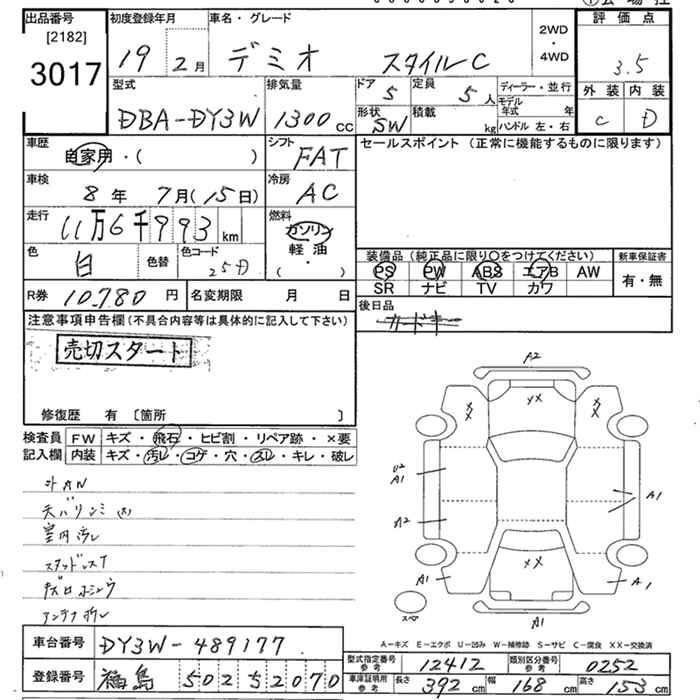 出品番号
[2182]
3017
初度登録年月
19 2月
車名・グレード
デミオ スタイルC
2WD
・
4WD
評価点
3.5
外装 内装
C D
型式
DBA-DY3W
排気量
1300 CC
ドア
5
定員
5 人
形状
SW
積載
kg
ディーラー・並行
モデル年式 年
ハンドル 左・右
車歴
自家用・( )
シフト
FAT
セールスポイント (正常に機能するものに限ります)
車検
8年 7月(15日)
冷房
AC
走行
11万6千993 km
燃料
ガソリン
軽油
( ・ )
色
白
色替
色コード
25D
装備品 (純正品に限り○をつけてください)
新車保証書
PS PW ABS エアB AW
SR ナビ TV カワ
有・無
R券 10,780 円
名変期限 月 日
後日品
注意事項申告欄 (不具合内容等は具体的に記入して下さい)
売切スタート
修復歴 有 〔箇所 〕
検査員記入欄
FW キズ・飛石・ヒビ割・リペア跡・×要
内装 キズ・汚レ・コゲ・穴・スレ・キレ・破レ
外AN
室内汚レ
A2
XX
XX
XX
U2
A1
A2
A1
A1
XX
A1
A1
スペア
A-キズ E-エクボ U-凹み W-補修跡 S-サビ C-腐食 XX-交換済
車台番号 DY3W-489177
登録番号 福島 502 ち2070
型式指定番号 参考 12412
類別区分番号 参考 0252
車庫証明用 参考 長さ 392 cm 幅 168 cm 高さ 153 cm